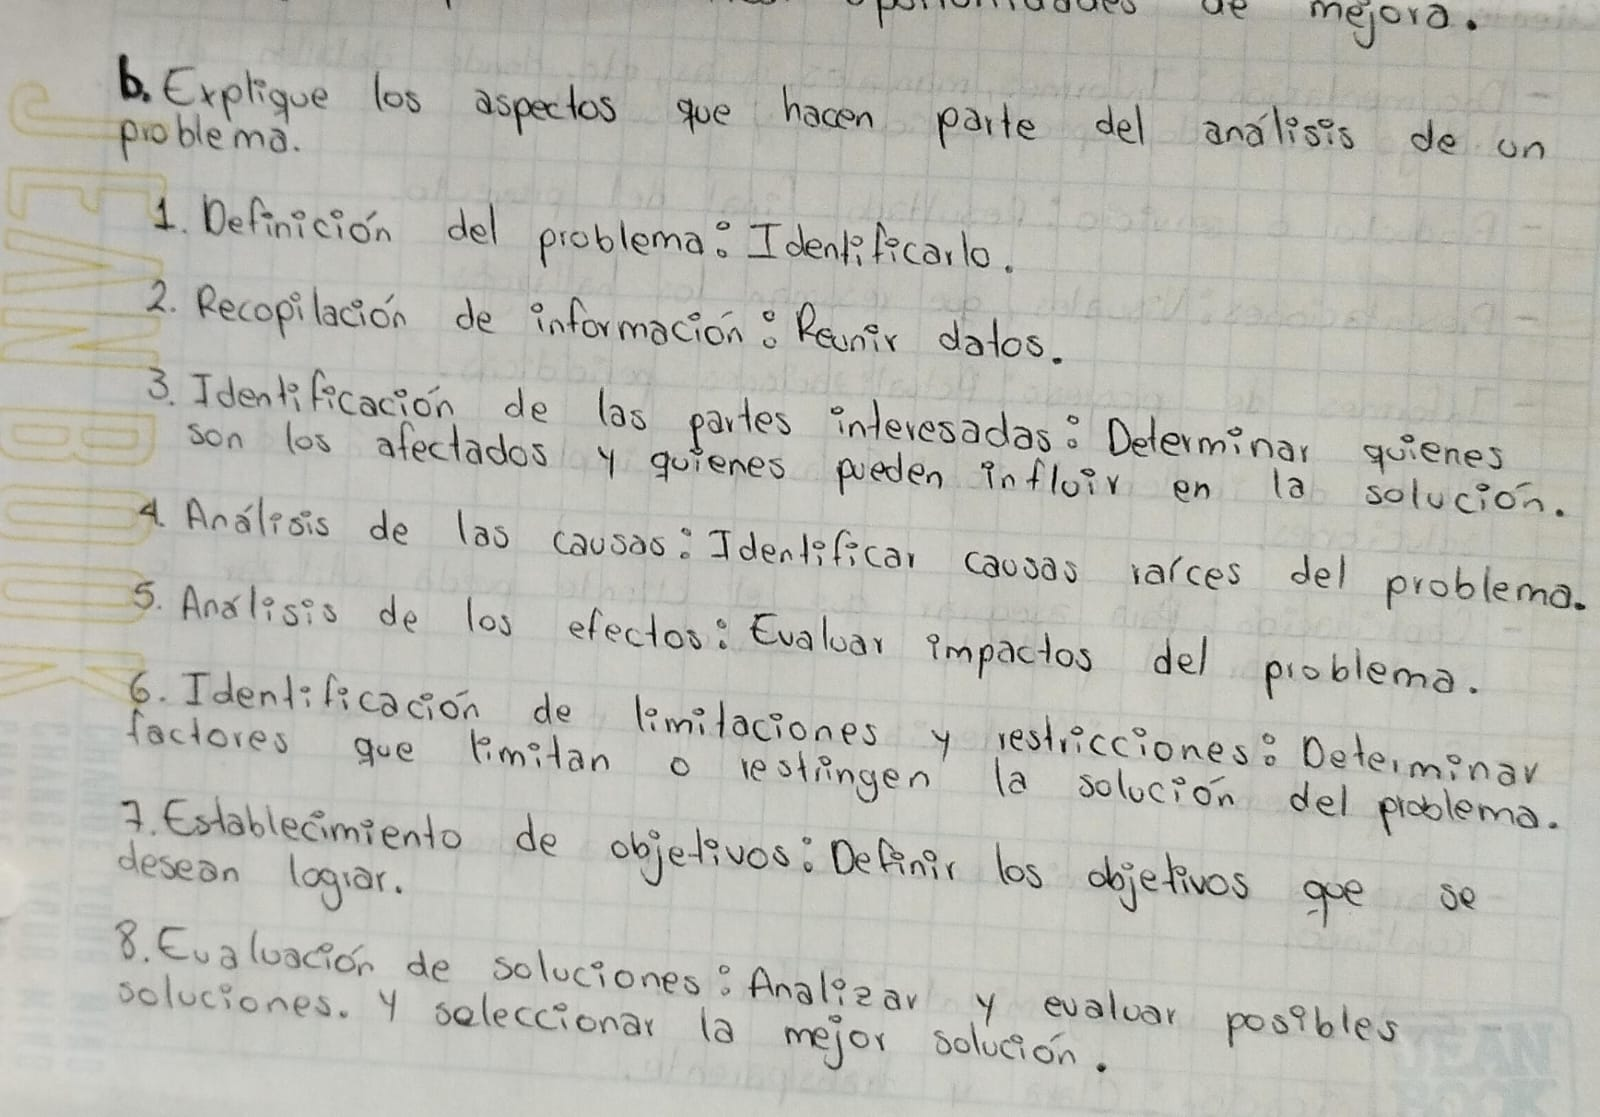 de mejora.
b. Explique los aspectos que hacen parte del análisis de un
problema.
1. Definición del problema: Identificarlo.
2. Recopilación de información: Reunir datos.
3. Identificación de las partes interesadas: Determinar quienes
son los afectados y quienes pueden influir en la solución.
4. Análisis de las causas: Identificar causas raíces del problema.
5. Análisis de los efectos: Evaluar impactos del problema.
6. Identificación de limitaciones y restricciones: Determinar
factores que limitan o restringen la solución del problema.
7. Establecimiento de objetivos: Definir los objetivos que se
desean lograr.
8. Evaluación de soluciones: Analizar y evaluar posibles
soluciones. Y seleccionar la mejor solución.
JEAN BOOK
JEAN
BOOK